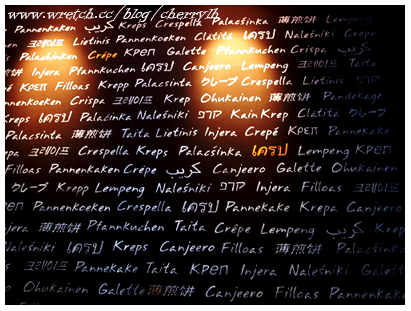 www.wretch.cc/blog/cherrylh
Pannenkaken Crepes Kreps Crespella Palacsinka 薄煎饼 Lempeng
크레이프 Lietinis Pannenkoeken Clatită เครป Naleśniki Crêpe
Palachinken Crêpe КРЕП Galette Pfannkuchen Crispa كريب
煎饼 Injera Pfannkuchen Canjeero Lempeng 크레이프 Taita
КРЕП Filloas Krepp Palacsinta クレープ Crespella Lietinis קרפ
Pannenkoeken Crispa 크레이프 Krep Ohukainen 薄煎饼 Pandekage
Kreps เครป Palačinka Naleśniki קרפ Kain Krep Clatită クレープ
Palacsinta 薄煎饼 Taita Lietinis Injera Crepé КРЕП Pannekake
크레이프 Crespella Kreps Palacsinka เครป Lempeng КРЕП
Filloas Pannenkaken Crêpe كريب Canjeero Galette Ohukainen
クレープ Krepp Lempeng Naleśniki קרפ Injera Filloas 크레이프
Pannenkoeken Crespella เครป Pannekake Krepa Canjeero
Injera 薄煎饼 Pfannkuchen Taita Crêpe Lempeng كريب Krepa
Naleśniki เครป Kreps Canjeero Filloas 薄煎饼 Palacsinka
크레이프 Pannekake Taita КРЕП Injera Naleśniki Galette
Ohukainen Galette 薄煎饼 Canjeero Filloas Crispa Pannenkaken